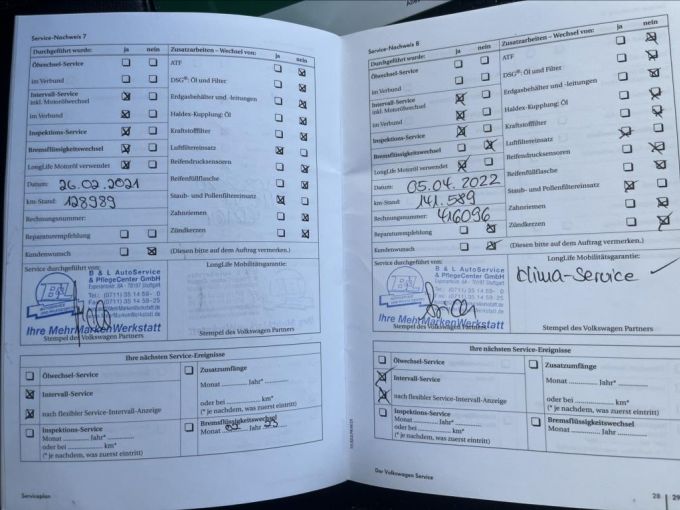 Service-Nachweis 7
Durchgeführt wurde: ja nein
Ölwechsel-Service
im Verbund
Intervall-Service
inkl. Motorölwechsel
im Verbund
Inspektions-Service
Bremsflüssigkeitswechsel
LongLife Motoröl verwendet
Datum: 26.02.2021
km-Stand: 128989
Rechnungsnummer:
Reparaturempfehlung
Kundenwunsch
Zusatzarbeiten – Wechsel von: ja nein
ATF
DSG®: Öl und Filter
Erdgasbehälter und -leitungen
Haldex-Kupplung: Öl
Kraftstofffilter
Luftfiltereinsatz
Reifendrucksensoren
Reifenfüllflasche
Staub- und Pollenfiltereinsatz
Zahnriemen
Zündkerzen
(Diesen bitte auf dem Auftrag vermerken.)
Service durchgeführt von:
B & L AutoService
& PflegeCenter GmbH
Tel.: (0711) 35 14 59- 0
Fax: (0711) 35 14 59-25
Ihre MehrMarkenWerkstatt
Stempel des Volkswagen Partners
LongLife Mobilitätsgarantie:
Stempel des Volkswagen Partners
Ihre nächsten Service-Ereignisse
Ölwechsel-Service
Intervall-Service
nach flexibler Service-Intervall-Anzeige
Inspektions-Service
Monat ........... Jahr* ...........
oder bei ........... km*
(* je nachdem, was zuerst eintritt)
Zusatzumfänge
Monat ........... Jahr* ...........
oder bei ........... km*
(* je nachdem, was zuerst eintritt)
Bremsflüssigkeitswechsel
Monat 02 Jahr 23
Serviceplan
Service-Nachweis 8
Durchgeführt wurde: ja nein
Ölwechsel-Service
im Verbund
Intervall-Service
inkl. Motorölwechsel
im Verbund
Inspektions-Service
Bremsflüssigkeitswechsel
LongLife Motoröl verwendet
Datum: 05.04.2022
km-Stand: 141.589
Rechnungsnummer: 416096
Reparaturempfehlung
Kundenwunsch
Zusatzarbeiten – Wechsel von: ja nein
ATF
DSG®: Öl und Filter
Erdgasbehälter und -leitungen
Haldex-Kupplung: Öl
Kraftstofffilter
Luftfiltereinsatz
Reifendrucksensoren
Reifenfüllflasche
Staub- und Pollenfiltereinsatz
Zahnriemen
Zündkerzen
(Diesen bitte auf dem Auftrag vermerken.)
Service durchgeführt von:
B & L AutoService
& PflegeCenter GmbH
Tel.: (0711) 35 14 59- 0
Fax: (0711) 35 14 59-25
Ihre MehrMarkenWerkstatt
Stempel des Volkswagen Partners
LongLife Mobilitätsgarantie:
Klima-Service ✓
Stempel des Volkswagen Partners
Ihre nächsten Service-Ereignisse
Ölwechsel-Service
Intervall-Service
nach flexibler Service-Intervall-Anzeige
Inspektions-Service
Monat ........... Jahr* ...........
oder bei ........... km*
(* je nachdem, was zuerst eintritt)
Zusatzumfänge
Monat ........... Jahr* ...........
oder bei ........... km*
(* je nachdem, was zuerst eintritt)
Bremsflüssigkeitswechsel
Monat ........... Jahr ...........
Der Volkswagen Service
28
29